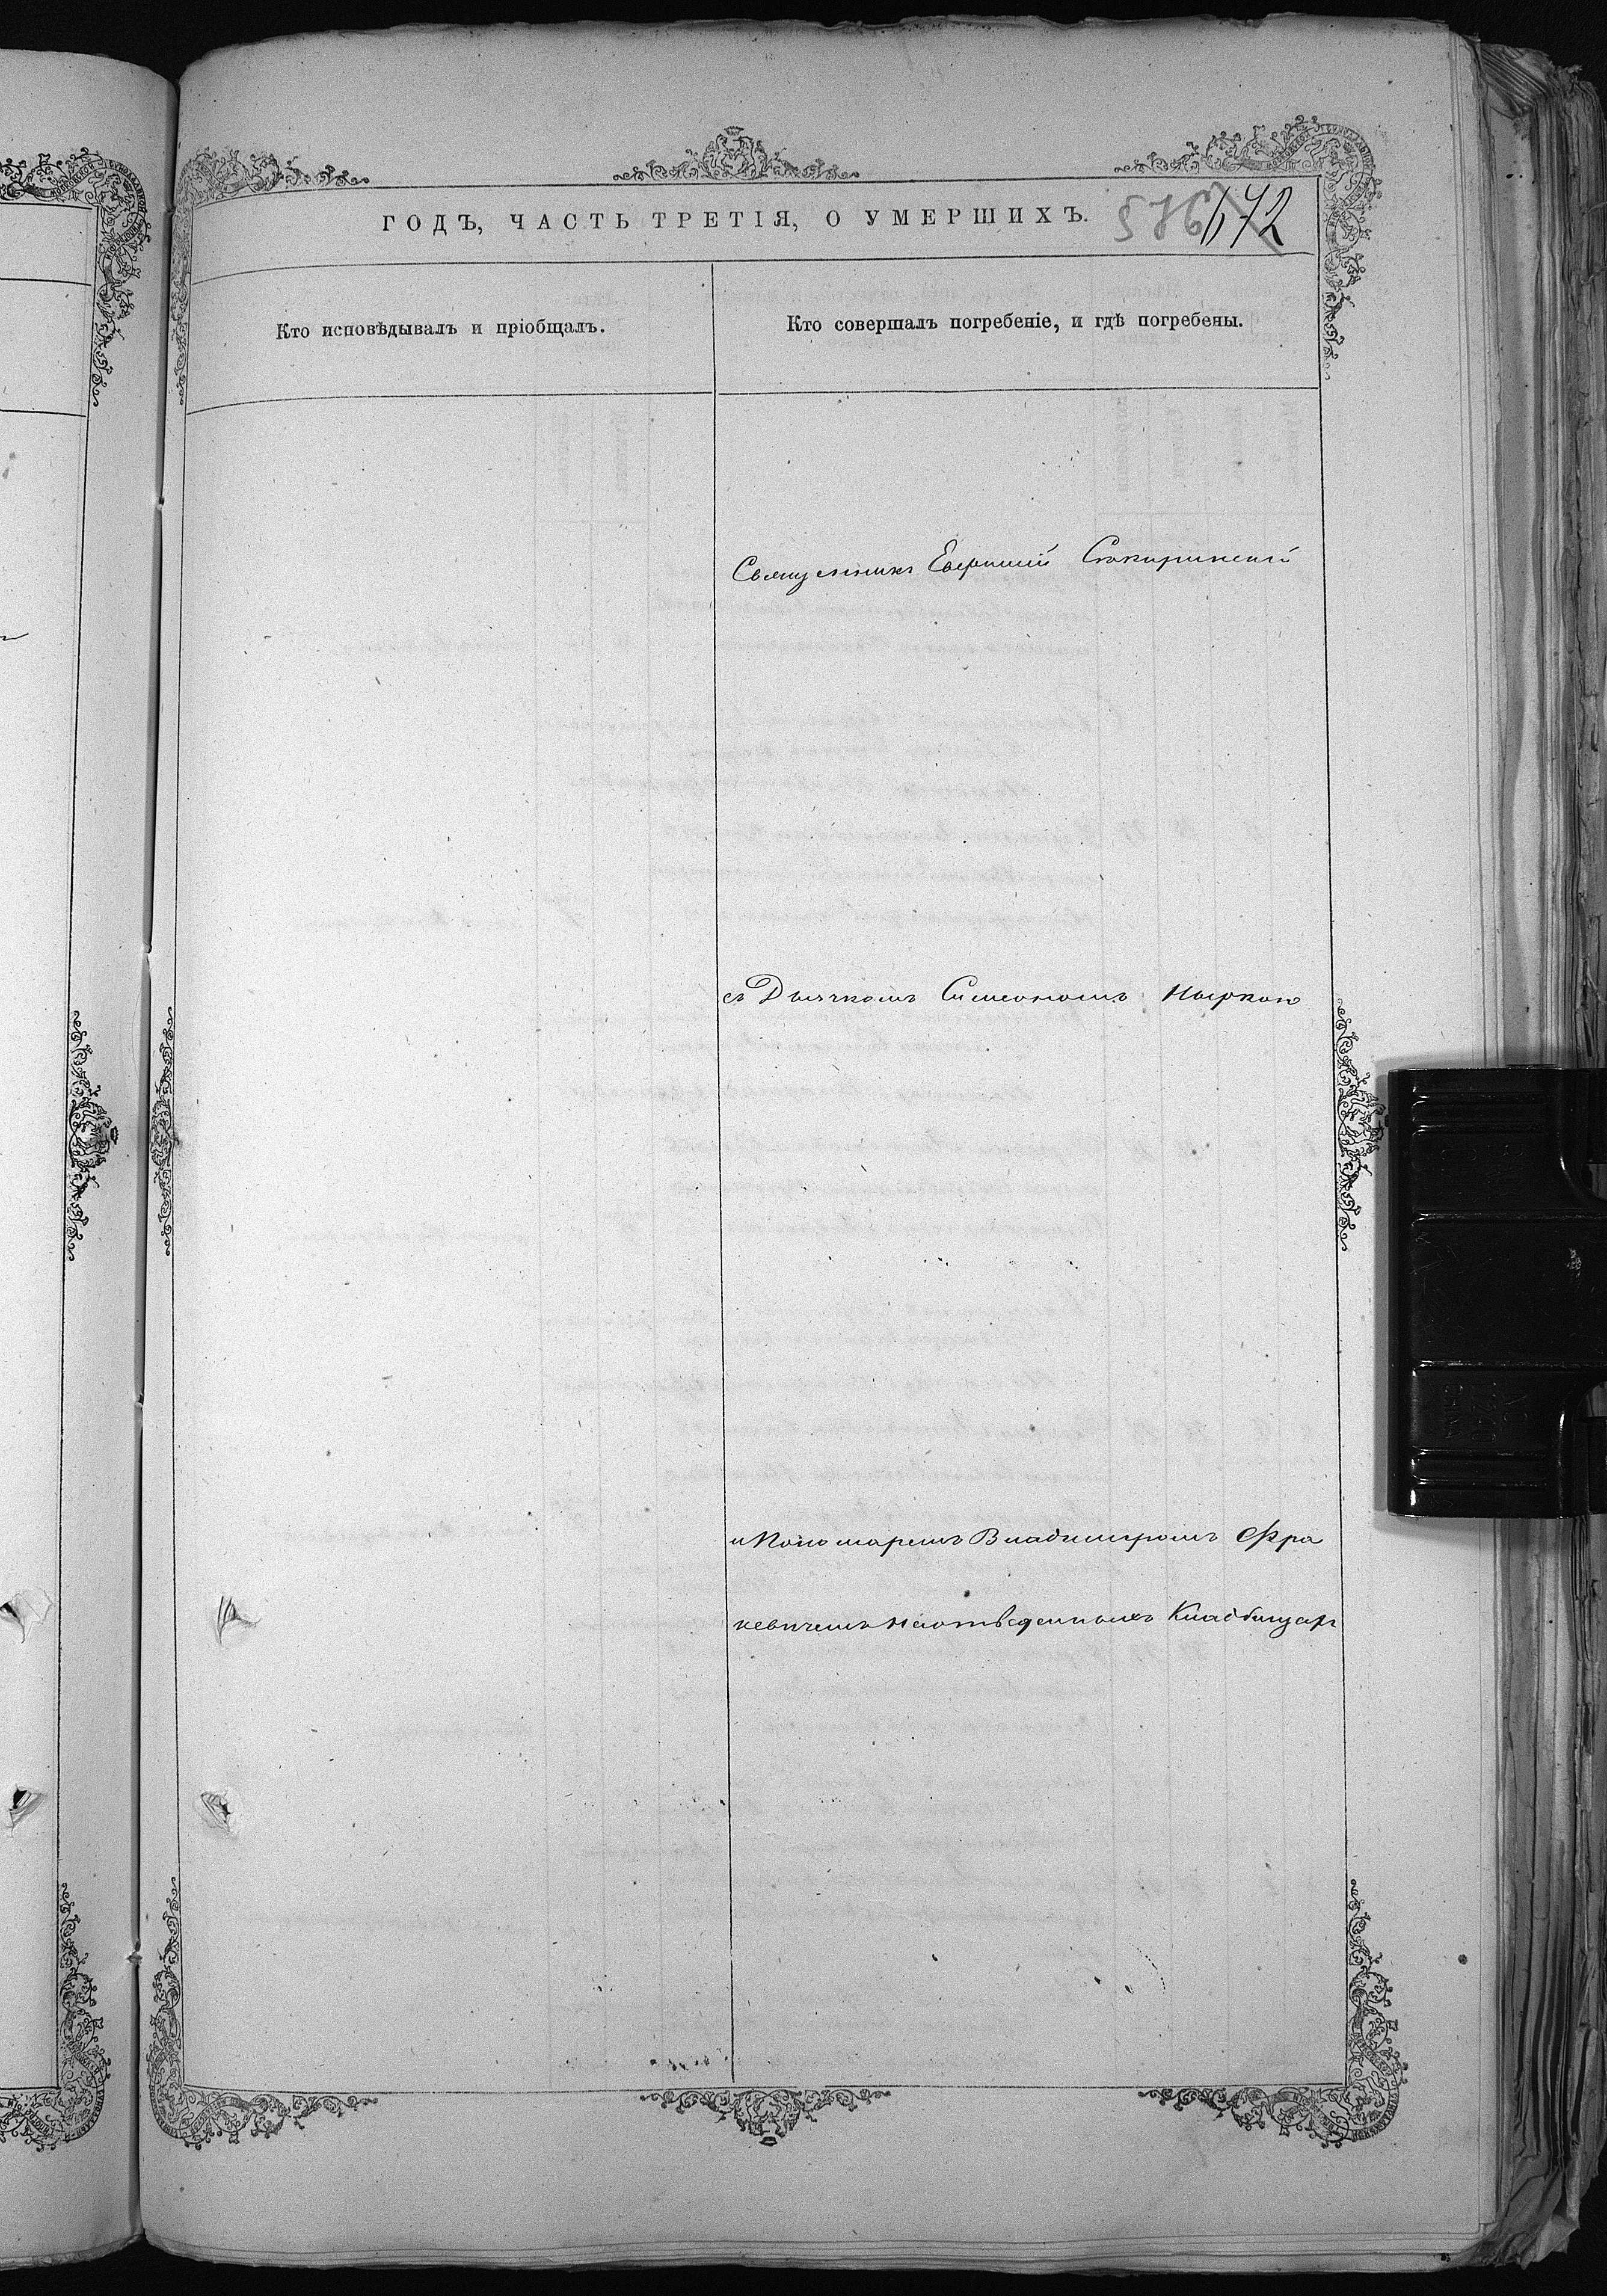 ГОДЪ, ЧАСТЬ ТРЕТІЯ, О УМЕРШИХЪ.
672
Кто исповѣдывалъ и пріобщалъ.
Кто совершалъ погребеніе, и гдѣ погребены.
Священникъ Евфимий Сокиринский
съ Дьячкомъ Симеономъ
и Пономаремъ Владимиромъ Фра
кевичемъ на отведенныхъ Кладбищахъ